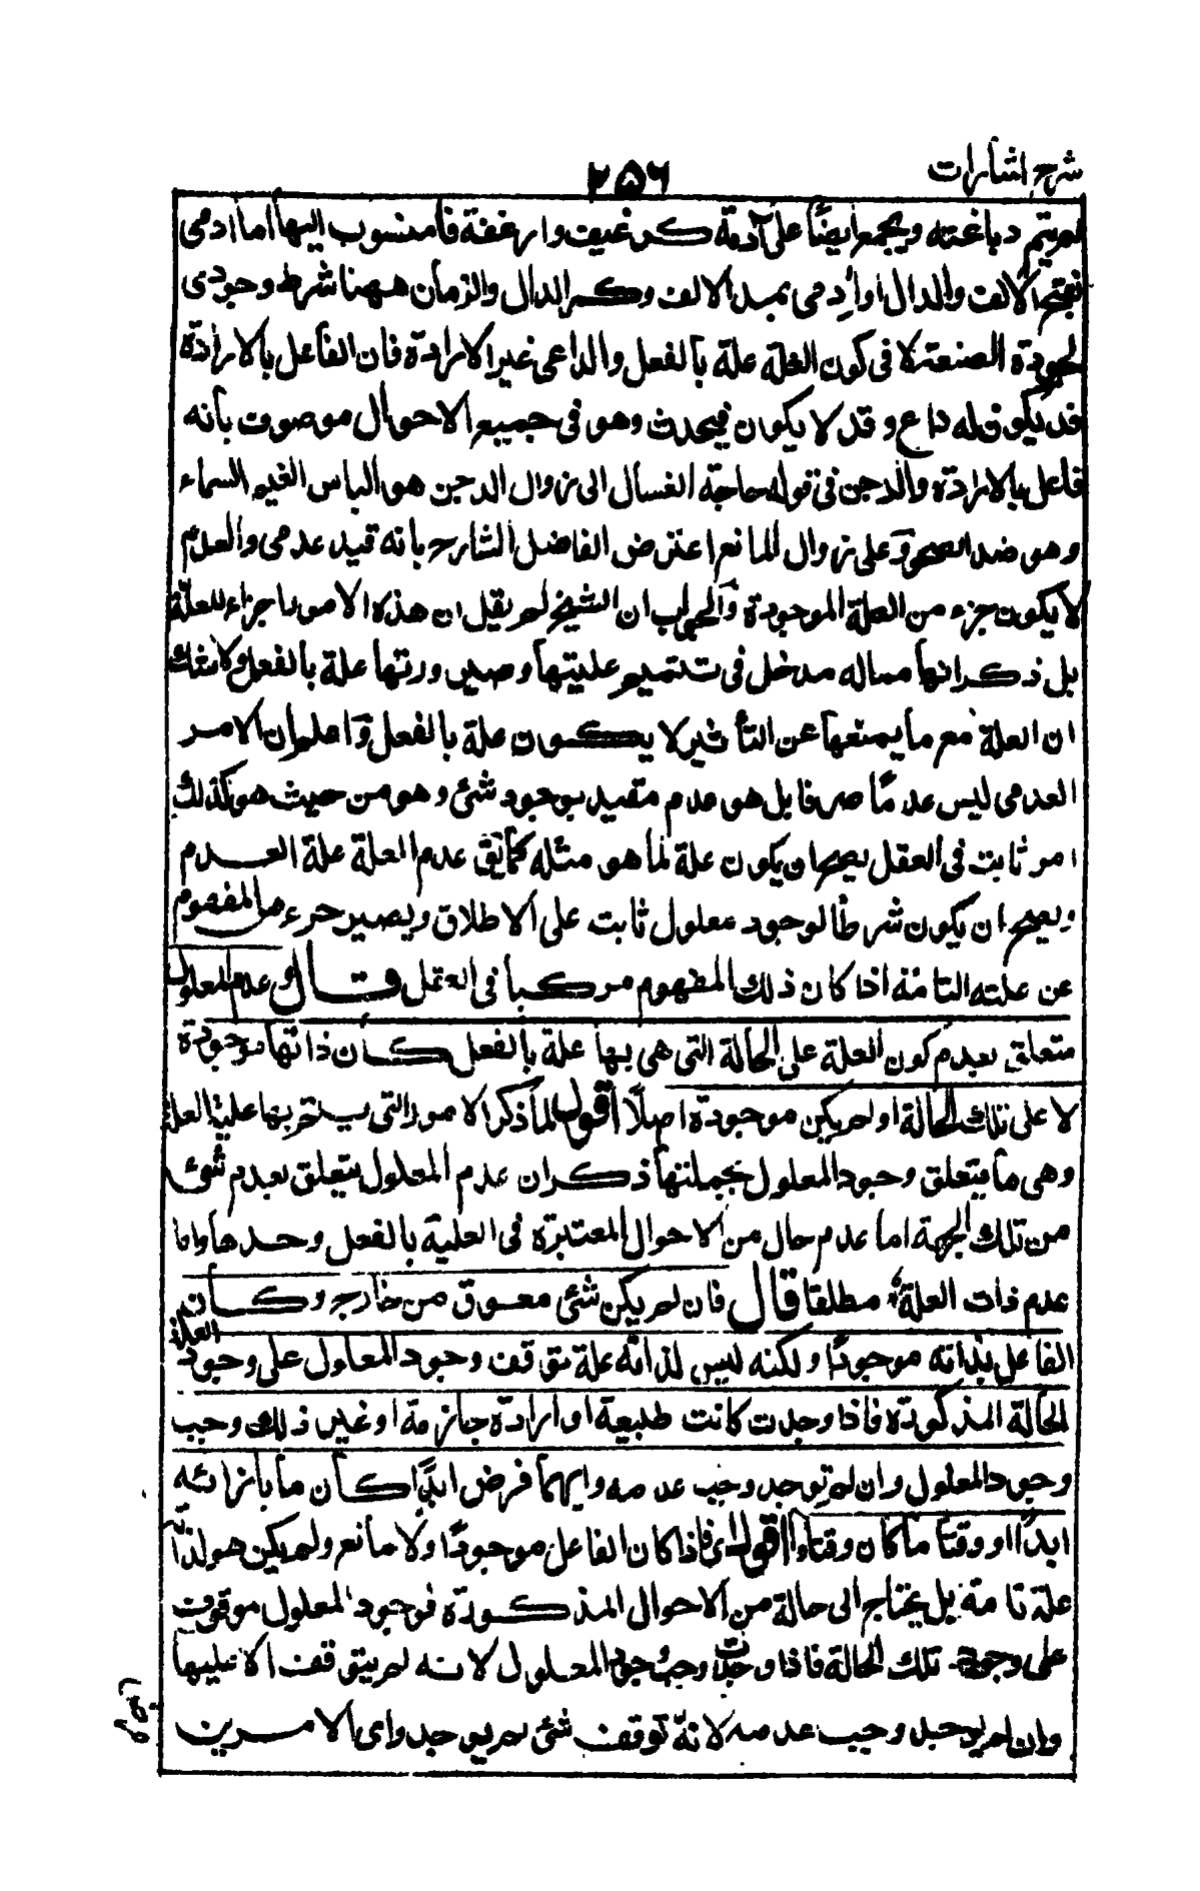 شرح اشارات
٢٥٦
لم يتم دباغته ويجمع ايضًا على آدمة كرغيف وارغفة فالمنسوب اليها اما ادمى
بفتح الالف والدال او اٰدِمى بمد الالف وكسر الدال والزمان ههنا شرط وجودى
لجودة الصنعة لا فى كون العلة علة بالفعل والداعى غير الارادة فان الفاعل بالارادة
قد يكون له داع وقد لا يكون فيحدث وهو فى جميع الاحوال موصوف بانه
فاعل بالارادة والدجن فى قوله حاجة الغسال الى زوال الدجن هو الباس الغيم السماء
وهو ضد الصحو وعلى زوال المانع اعترض الفاضل الشارح بانه قيد عدمى والعدم
لا يكون جزء من العلة الموجودة والجواب ان الشيخ لم يقل ان هذه الامور اجزاء للعلة
بل ذكر انها مما له مدخل فى تتميم عليتها وصيرورتها علة بالفعل ولا شك
ان العلة مع ما يمنعها عن التأثير لا يكون علة بالفعل واعلم ان الامر
العدمى ليس عدمًا صرفا بل هو عدم مقيد بوجود شئ وهو من حيث هو كذلك
امر ثابت فى العقل يصح ان يكون علة لما هو مثله كما يق عدم العلة علة العدم
ويصح ان يكون شرطًا لوجود معلول ثابت على الاطلاق ويصير جزء من المفهوم
عن علته التامة اذا كان ذلك المفهوم مركبا فى العقل قال وعدم المعلول
متعلق بعدم كون العلة على الحالة التى هى بها علة بالفعل كان ذاتها موجودة
لا على تلك الحالة او لم يكن موجودة اصلًا اقول لما ذكر الامور التى يتم بها علية العلة
وهى ما يتعلق وجود المعلول بجملتها ذكر ان عدم المعلول يتعلق بعدم شئ
من تلك الجهة اما عدم حال من الاحوال المعتبرة فى العلية بالفعل وحدها واما
عدم ذات العلة مطلقا قال فان لم يكن شئ معوق من خارج وكان
الفاعل بذاته موجودًا ولكنه ليس لذاته علة توقف وجود المعلول على وجود
الحالة المذكورة فاذا وجدت كانت طبيعة او ارادة جازمة او غير ذلك وجب
وجود المعلول وان لم توجد وجب عدمه وايهما فرض ابدًا كان ما بازائه
ابدًا او وقتًا ما كان وقتا ما اقول اى فاذا كان الفاعل موجودًا ولا مانع ولم يكن هو لذاته
علة تامة بل يحتاج الى حالة من الاحوال المذكورة فوجود المعلول موقوف
على وجود تلك الحالة فاذا وجدت وجب وجود المعلول لانه لم يتوقف الا عليها
وان لم يوجد وجب عدمه لانه توقف شئ لم يوجد واى الامرين